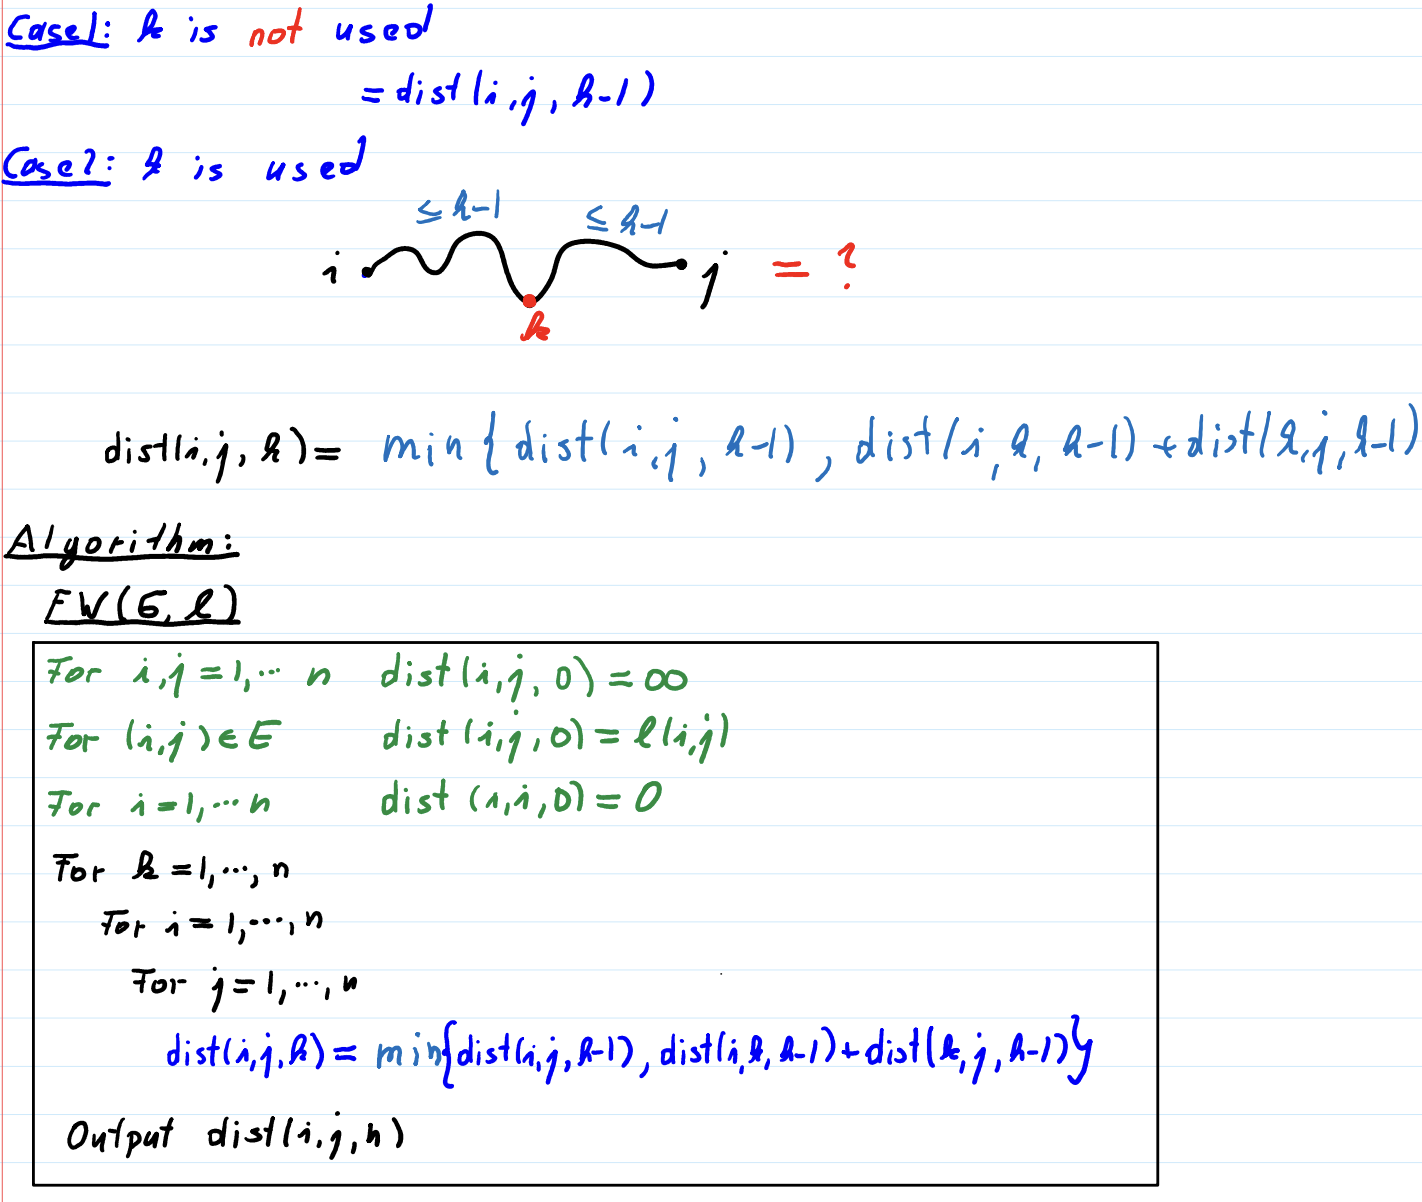 Case1: k is not used
= dist(i,j, k-1)
Case2: k is used
≤ k-1 ≤ k-1
i j = ?
k
dist(i,j, k) = min{ dist(i,j, k-1) , dist(i, k, k-1) + dist(k,j, k-1)
Algorithm:
FW(G, l)
For i,j = 1,... n dist(i,j, 0) = ∞
For (i,j) ∈ E dist(i,j,0) = l(i,j)
For i = 1,... n dist (i,i,0) = 0
For k = 1,..., n
For i = 1,..., n
For j = 1,..., n
dist(i,j,k) = min{dist(i,j, k-1), dist(i,k, k-1) + dist(k,j, k-1)}
Output dist(i,j,n)